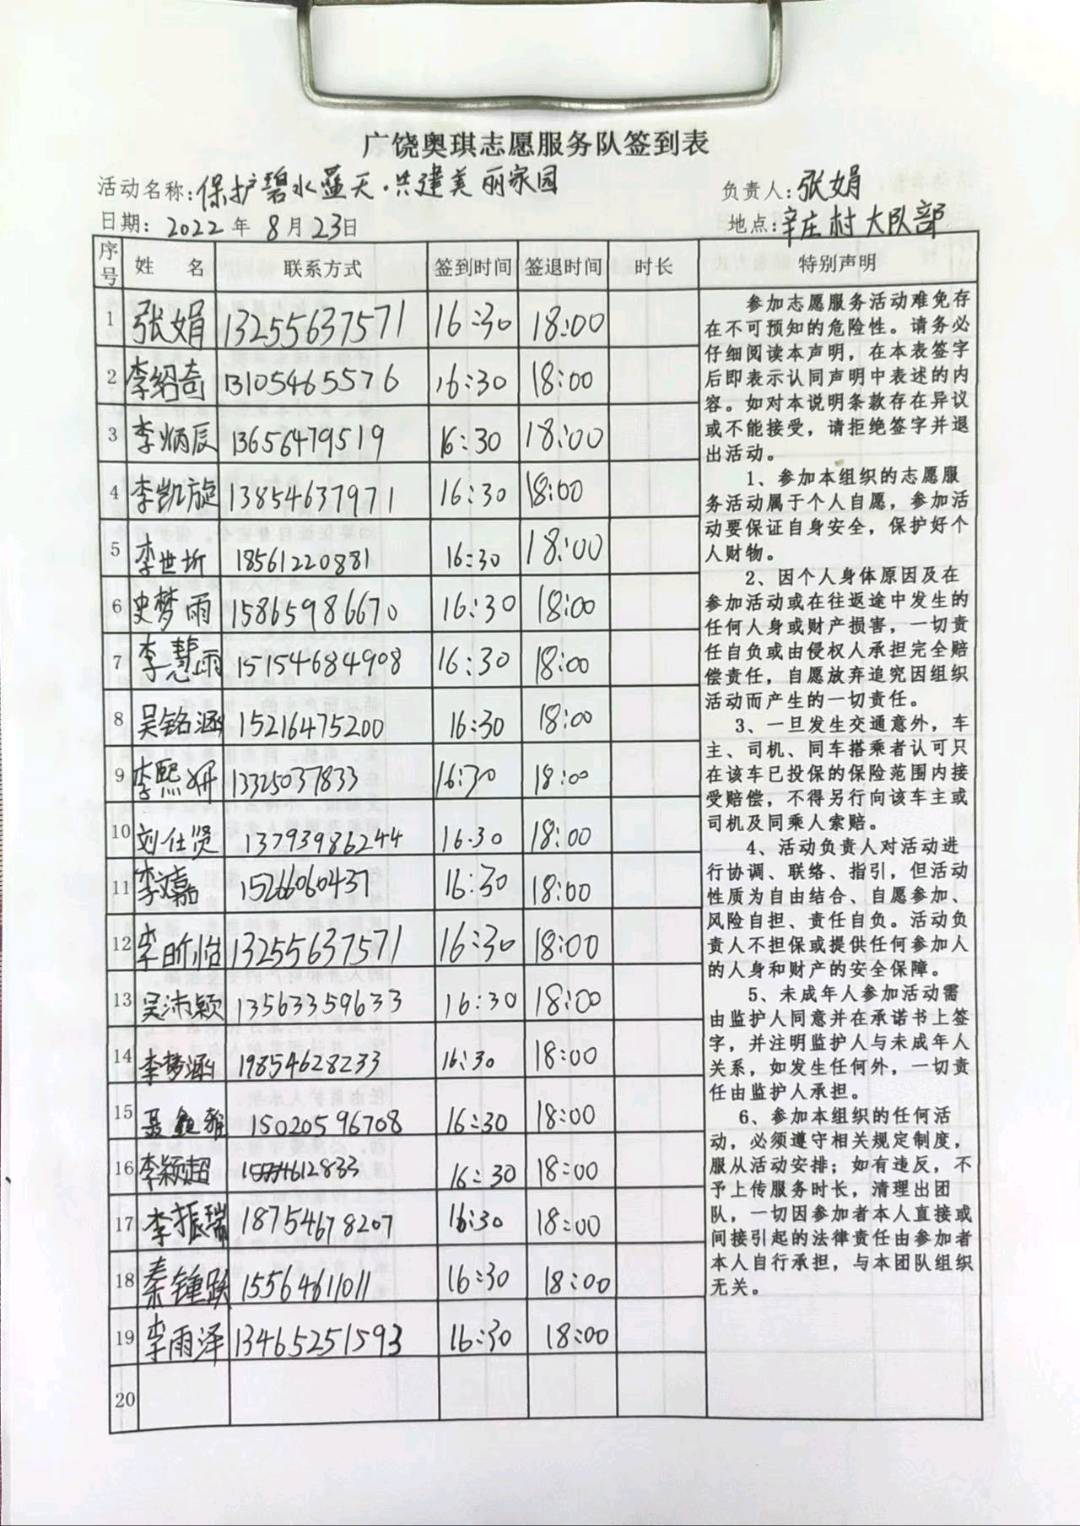 广饶奥琪志愿服务队签到表
活动名称:保护碧水蓝天·共建美丽家园 负责人:张娟
日期:2022年8月23日 地点:辛庄村大队部
序号 姓 名 联系方式 签到时间 签退时间 时长 特别声明
1 张娟 13255637571 16:30 18:00
2 李绍奇 13105465576 16:30 18:00
3 李炳辰 13656479519 16:30 18:00
4 李凯旋 13854637971 16:30 18:00
5 李世圻 18561220881 16:30 18:00
6 史梦雨 15865986670 16:30 18:00
7 李慧雨 15154684908 16:30 18:00
8 吴铭涵 15216475200 16:30 18:00
9 李熙妍 13325037833 16:30 18:00
10 刘仕贤 13793986244 16:30 18:00
11 李嘉 15266060437 16:30 18:00
12 李昕怡 13255637571 16:30 18:00
13 吴沛颖 13563359633 16:30 18:00
14 李梦涵 19854628233 16:30 18:00
15 聂鑫雅 15020596708 16:30 18:00
16 李颖超 16:30 18:00
17 李振瑞 18754678207 16:30 18:00
18 秦锺跃 15564611011 16:30 18:00
19 李雨泽 13465251593 16:30 18:00
20
参加志愿服务活动难免存
在不可预知的危险性。请务必
仔细阅读本声明，在本表签字
后即表示认同声明中表述的内
容。如对本说明条款存在异议
或不能接受，请拒绝签字并退
出活动。
1、参加本组织的志愿服
务活动属于个人自愿，参加活
动要保证自身安全，保护好个
人财物。
2、因个人身体原因及在
参加活动或在往返途中发生的
任何人身或财产损害，一切责
任自负或由侵权人承担完全赔
偿责任，自愿放弃追究因组织
活动而产生的一切责任。
3、一旦发生交通意外，车
主、司机、同车搭乘者认可只
在该车已投保的保险范围内接
受赔偿，不得另行向该车主或
司机及同乘人索赔。
4、活动负责人对活动进
行协调、联络、指引，但活动
性质为自由结合、自愿参加、
风险自担、责任自负。活动负
责人不担保或提供任何参加人
的人身和财产的安全保障。
5、未成年人参加活动需
由监护人同意并在承诺书上签
字，并注明监护人与未成年人
关系，如发生任何外，一切责
任由监护人承担。
6、参加本组织的任何活
动，必须遵守相关规定制度，
服从活动安排；如有违反，不
予上传服务时长，清理出团
队，一切因参加者本人直接或
间接引起的法律责任由参加者
本人自行承担，与本团队组织
无关。